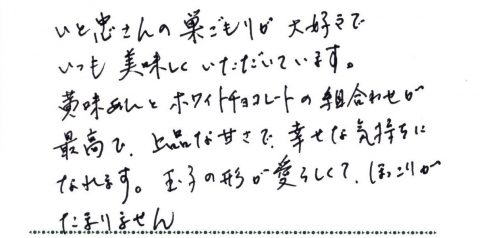 いと忠さんの巣ごもりが大好きで
いつも美味しくいただいています。
黄味あんとホワイトチョコレートの組合わせが
最高で、上品な甘さで、幸せな気持ちに
なれます。玉子の形が愛らしくて、ほっこりが
たまりません